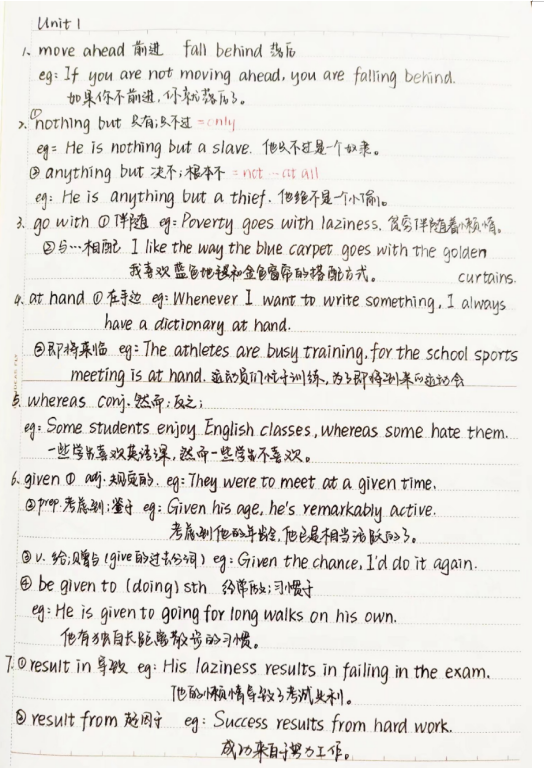 Unit 1
1. move ahead 前进 fall behind 落后
eg: If you are not moving ahead, you are falling behind.
如果你不前进,你就落后了。
2. ①nothing but 只有;只不过 =only
eg= He is nothing but a slave. 他只不过是一个奴隶。
② anything but 决不;根本不 = not…at all
eg: He is anything but a thief. 他绝不是一个小偷。
3. go with ① 伴随 eg: Poverty goes with laziness. 贫穷伴随着懒惰。
②与…相配 I like the way the blue carpet goes with the golden
curtains.
我喜欢蓝色地毯和金色窗帘的搭配方式。
4. at hand ① 在手边 eg: Whenever I want to write something, I always
have a dictionary at hand.
②即将来临 eg: The athletes are busy training, for the school sports
meeting is at hand. 运动员们忙于训练,为了即将到来的运动会
5. whereas conj. 然而;反之;
eg: Some students enjoy English classes, whereas some hate them.
一些学生喜欢英语课,然而一些学生不喜欢。
6. given ① adj. 规定的. eg: They were to meet at a given time.
②prep. 考虑到;鉴于 eg: Given his age, he's remarkably active.
考虑到他的年龄,他已是相当活跃的了。
③ v. 给;赠与 (give的过去分词) eg: Given the chance, I'd do it again.
④ be given to (doing) sth 经常做;习惯于
eg: He is given to going for long walks on his own.
他有独自长距离散步的习惯。
7. ① result in 导致 eg: His laziness results in failing in the exam.
他的懒惰导致了考试失利。
② result from 起因于 eg: Success results from hard work.
成功来自于努力工作。